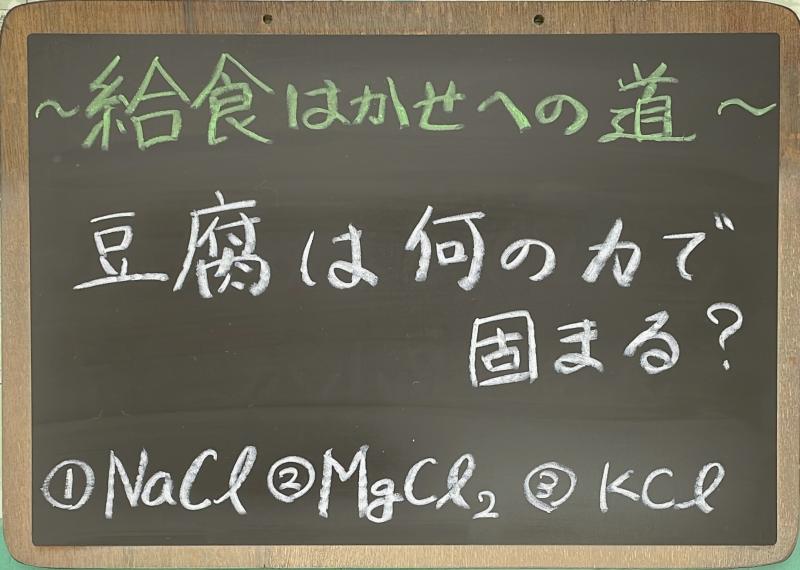 ～給食はかせへの道～
豆腐は何の力で
固まる?
①NaCl ②MgCl₂ ③KCl